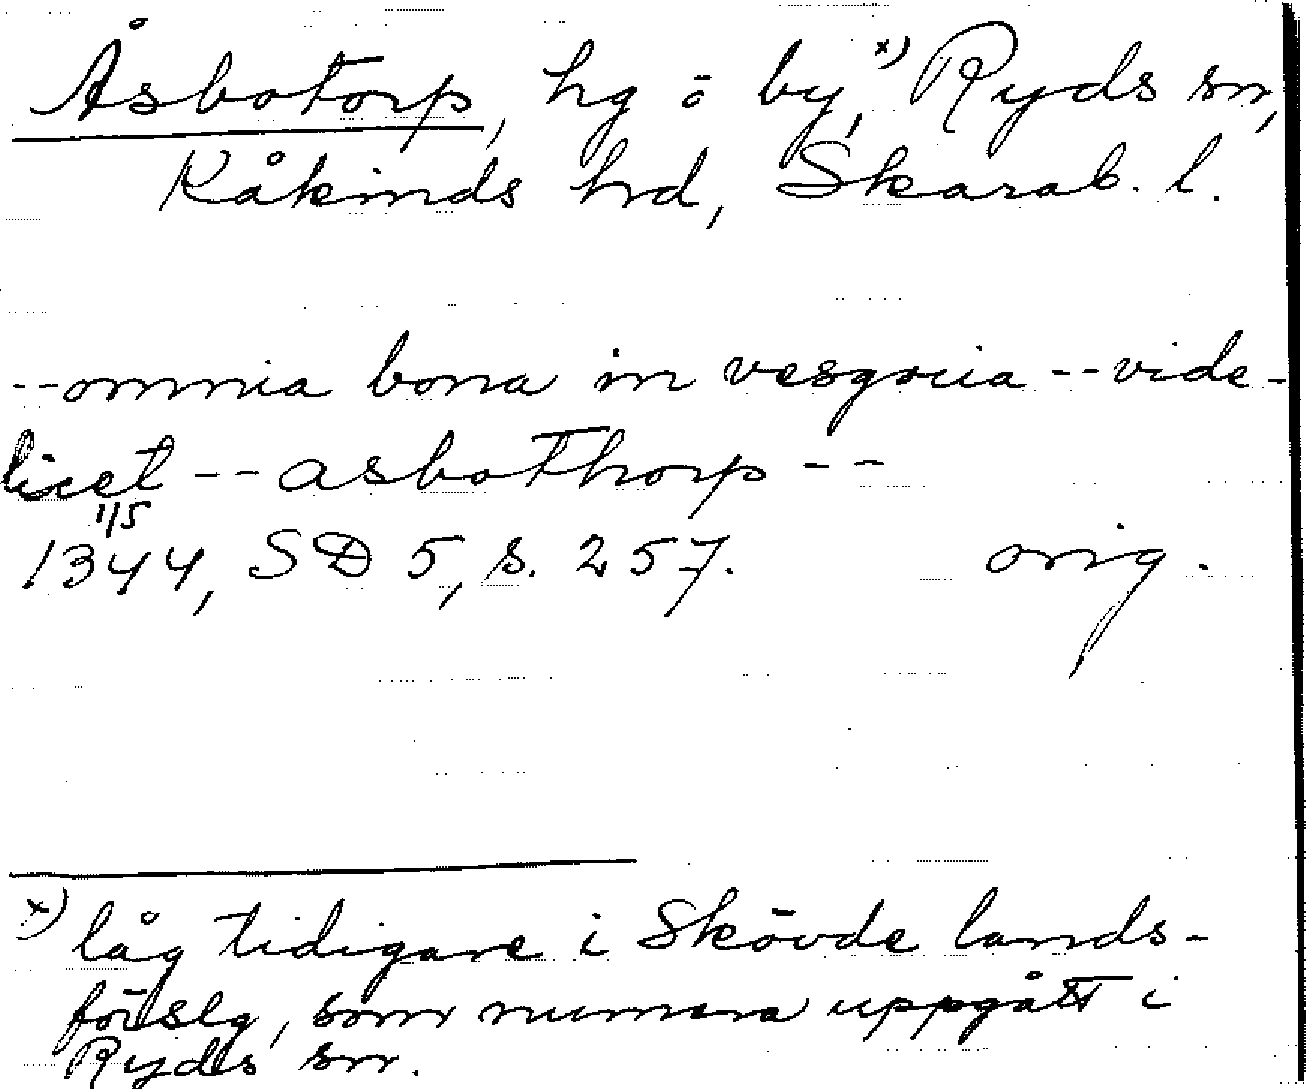 Åsbotorp, hg o by,ˣ⁾ Ryds sn,
Kåkinds hd, Skarab. l.
--omnia bona in vesgocia --vide-
licet -- asbothorp --
1/5
1344, SD 5, s. 257. orig.
x) låg tidigare i Skövde lands-
förslg, som numera uppgått i
Ryds sn.